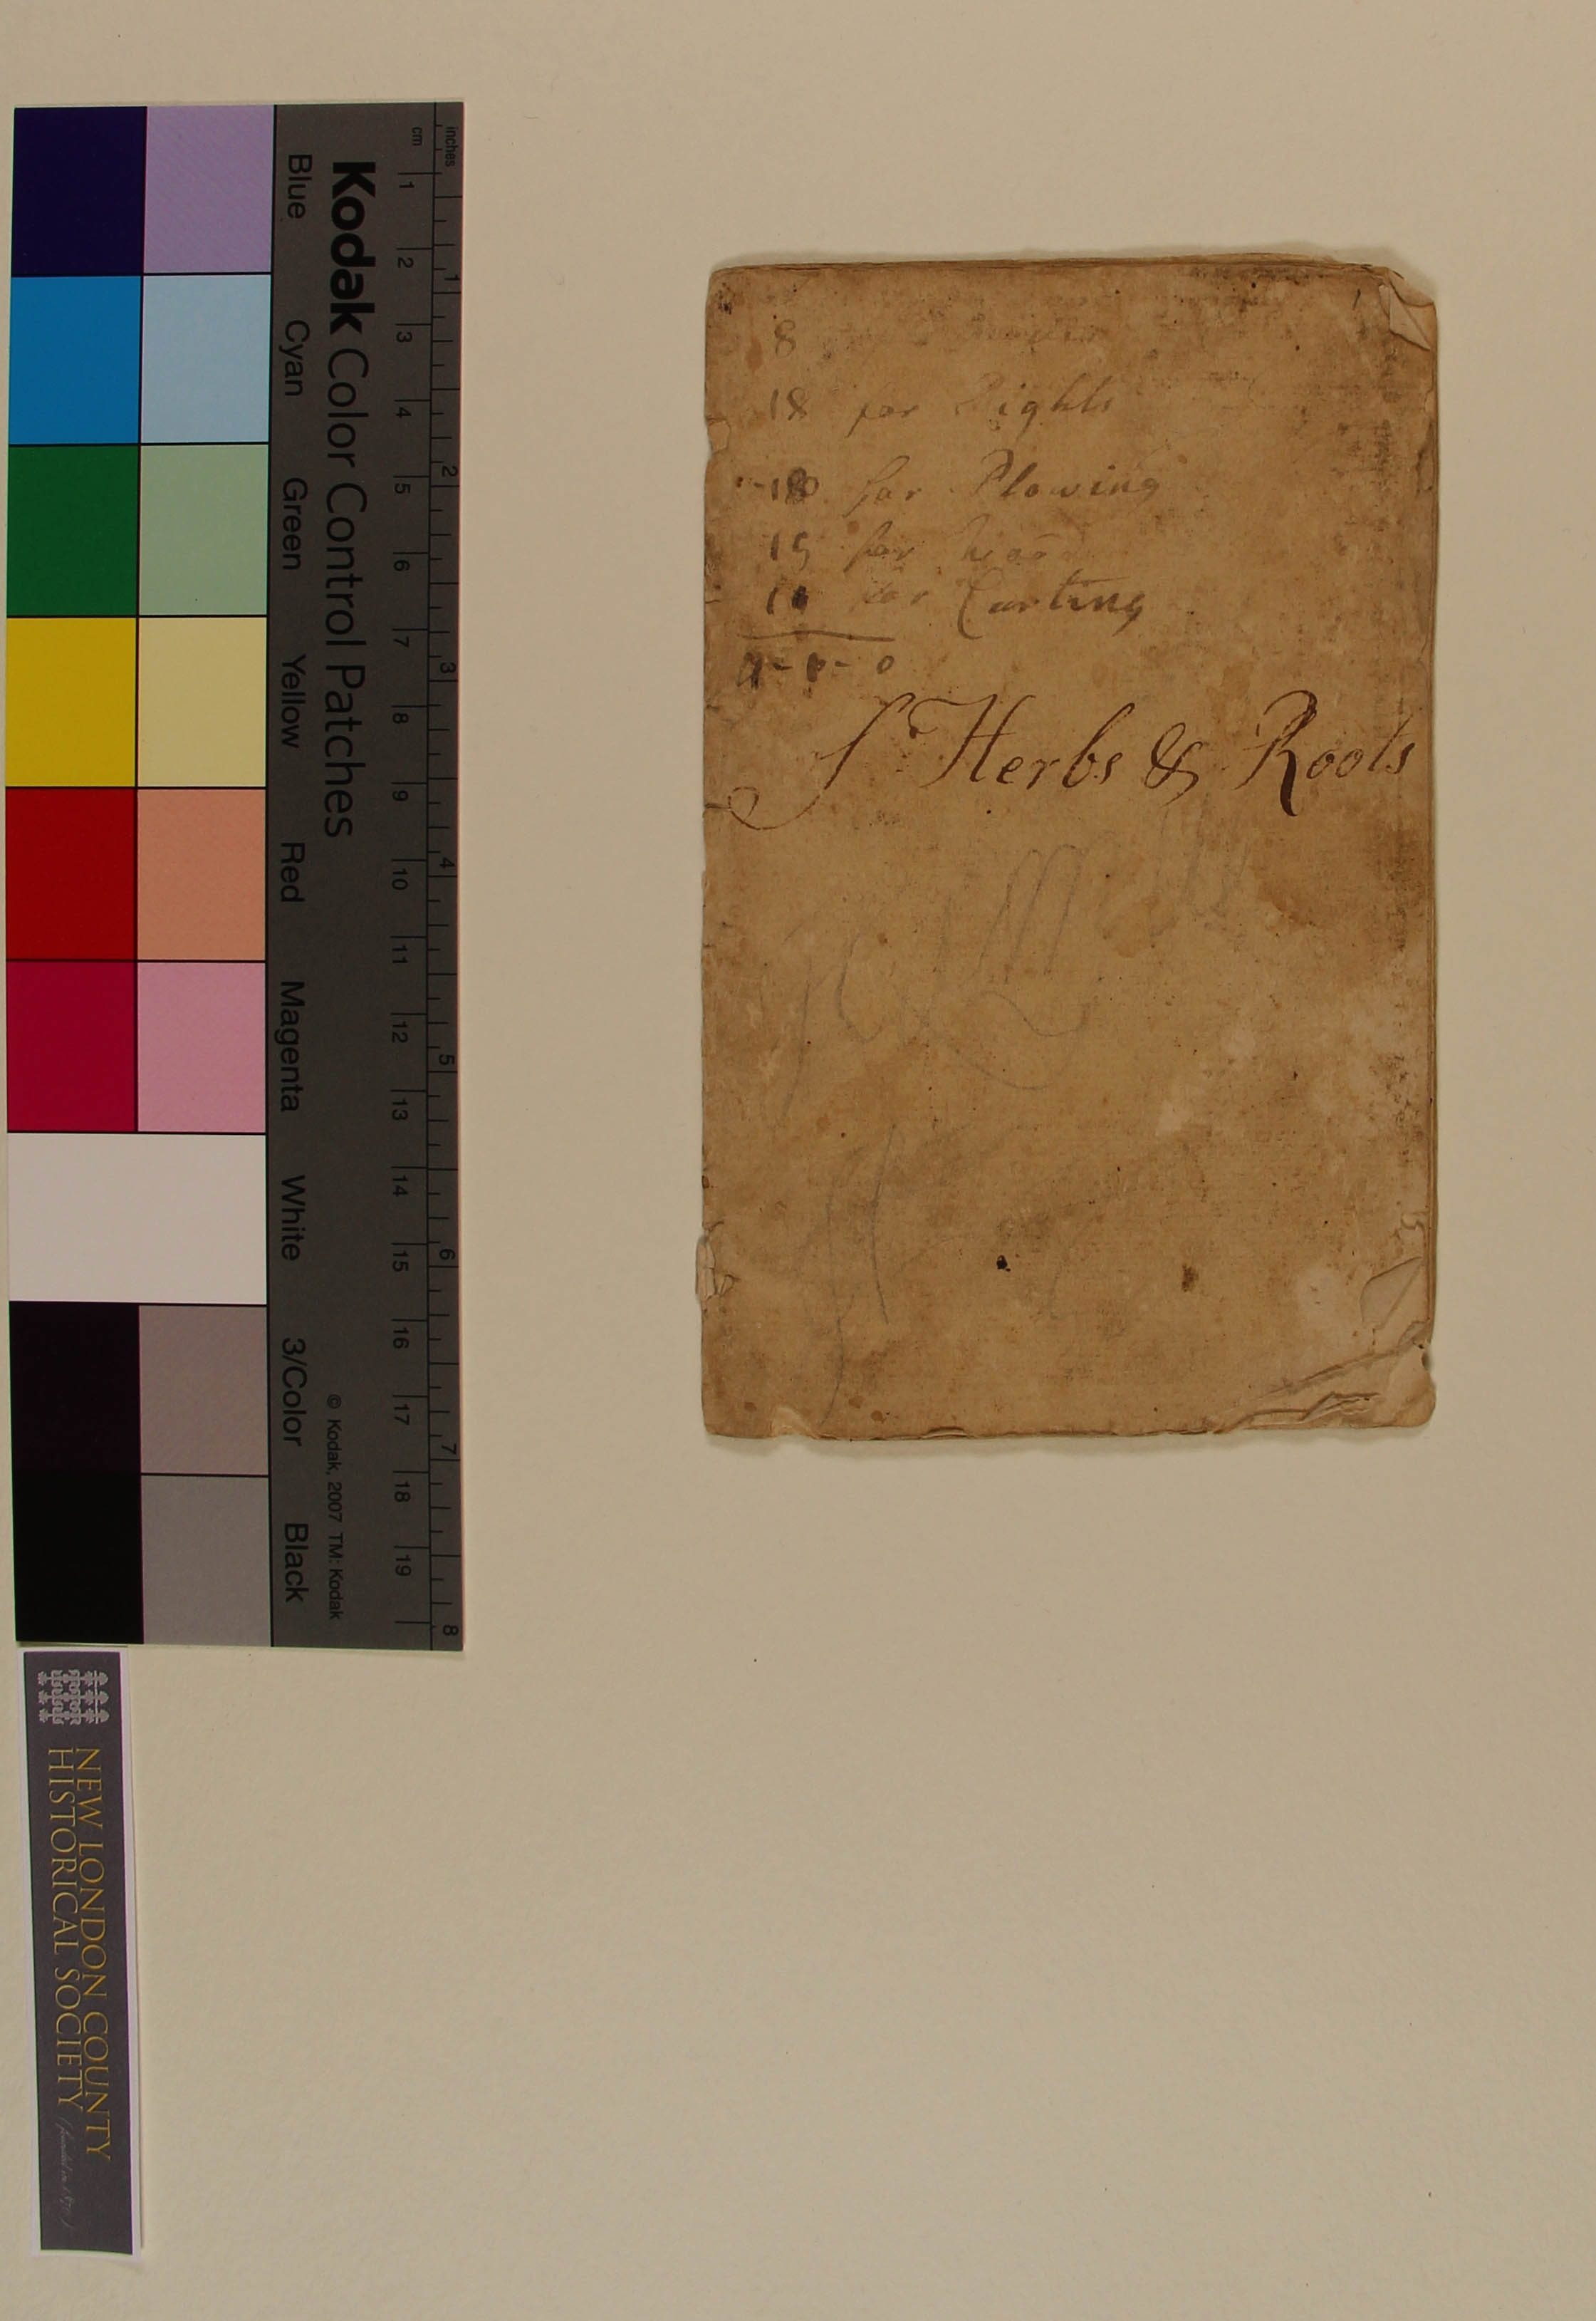 8
18 for Rights
18 for Plowing
15 for
for Carting
Herbs & Roots
Kodak Color Control Patches
Blue Cyan Green Yellow Red Magenta White 3/Color Black
© Kodak, 2007 TM: Kodak
cm 1 2 3 4 5 6 7 8 9 10 11 12 13 14 15 16 17 18 19
inches 1 2 3 4 5 6 7 8
NEW LONDON COUNTY
HISTORICAL SOCIETY